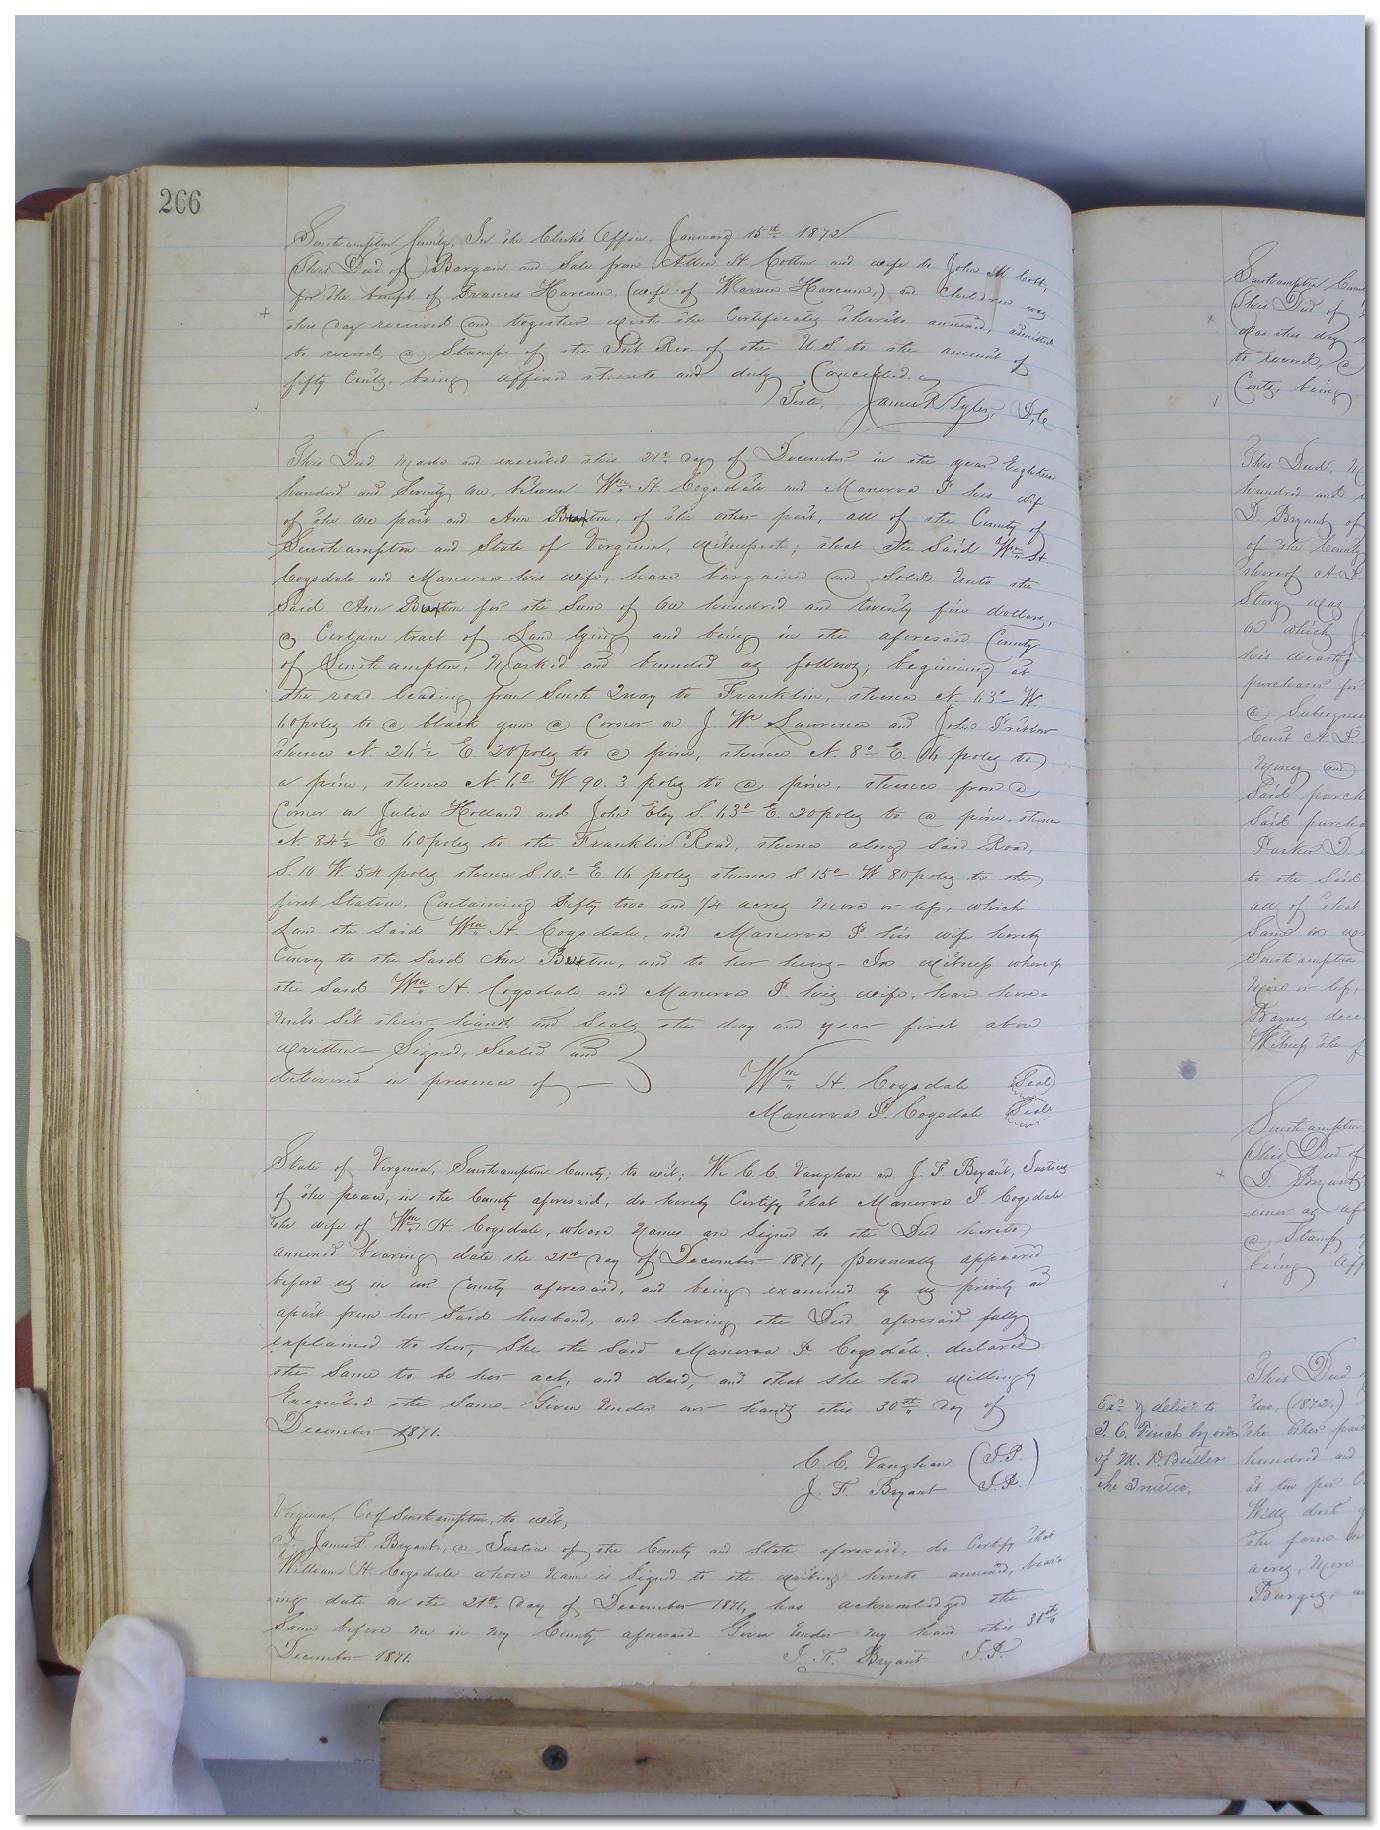 266
Southampton County, In the Clerk's Office, January 15th 1872.
This Deed of Bargain and Sale from Allen H Cotton and wife to John M Cott,
for the benefit of Frances Harcum, (wife of Warren Harcum,) and Children was
this day received and together with the Certificates thereto annexed, admitted
to record, a Stamp of the Int Rev of the U S to the amount of
fifty Cents, being affixed thereto and duly Cancelled
Teste, James R Tyler, D,C
This Deed made and executed this 21st day of December in the year Eighteen
hundred and Seventy One, between Wm H Cogsdale and Manerva P his wife
of the one part and Ann Buxton, of the other part, all of the County of
Southampton and State of Virginia, witnesseth; that the Said Wm H
Cogsdale and Manerva his wife, have bargained and Sold Unto the
Said Ann Buxton for the Sum of One hundred and twenty five dollars,
a Certain tract of Land lying and being in the aforesaid County
of Southampton, Marked and bounded as follows; begining at
the road leading from South Quay to Franklin, thence N. 43° W
40 poles to a black gum a Corner on J W Lawrence and John
thence N 24½ E. 20 poles to a pine, thence N. 8° E. 14 poles to
a pine, thence N 4° W 90. 3 poles to a pine, thence from a
Corner on Julia Holland and John Eley S 43° E. 20 poles to a pine, thence
N 84½ E 40 poles to the Franklin Road, thence along Said Road,
S. 10 W. 54 poles thence S 10.° E 16 poles thence S 15° W 80 poles to the
first Station, Containing fifty two and 1/4 acres more or less, which
Land the Said Wm H. Cogsdale, and Manerva P. his wife hereby
Convey to the Said Ann Buxton, and to her heirs- In witness whereof
the Said Wm H. Cogsdale and Manerva P. his wife, have here-
unto Set their hands and Seals the day and year first above
written- Signed, Sealed and
delivered in presence of -
Wm H. Cogsdale (Seal)
Manerva P. Cogsdale (Seal)
State of Virginia, Southampton County; to wit; We C. C. Vaughan and J. F. Bryant, Justices
of the peace, in the County aforesaid, do hereby Certify that Manerva P Cogsdale
the wife of Wm H. Cogsdale, whose Names are Signed to the Deed hereto
annexed bearing date the 21st day of December 1871, personally appeared
before us in our County aforesaid, and being examined by us privily and
apart from her Said husband, and having the Deed aforesaid fully
explained to her, She the Said Manerva P. Cogsdale declared
the Same to be her act, and deed, and that She had willingly
Executed the Same- Given Under our hands this 30th day of
December 1871.
C. C. Vaughan (J.P.)
J. F. Bryant J.P.
Virginia, Co of Southampton, to wit,
I James F. Bryant, a Justice of the County and State aforesaid, do Certify that
William H. Cogsdale whose Name is Signed to the writing hereto annexed, bear-
ing date on the 21st day of December 1871, has acknowledged the
Same before me in my County aforesaid- Given Under my hand this 30th
December 1871. J. F. Bryant J.P.
Southampton Coun
This Deed of
was this day
to record, a
Cents, being
This Deed, M
hundred and
D Bryant of
of the County
thereof A. D
Story was
on which
his death
purchaser for
a Subsequen
Court A. D.
Money and
Said purch
Said purcha
Parker D.
to the Said
all of that
Same on
Southampton
More or less,
Barnes dece
Witness the f
Southampton
This Deed of
D Bryant
a Stamp
being Aff
This Deed
Exd & deliv'd to
J. C. Finch by order
of M. D Butler
the Trustee,
two, (1872.)
the other part
hundred and
at ten per C
the farm
acres, More
Barges, a